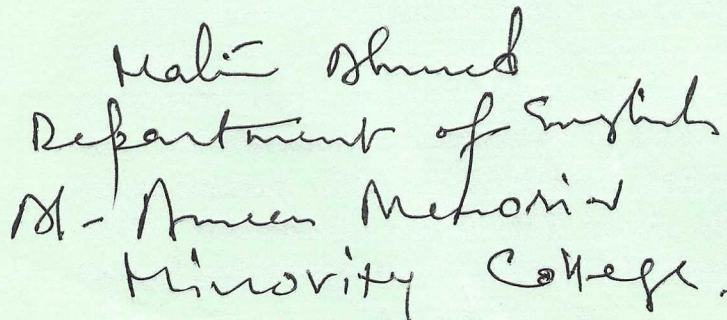 Ahmed
Department of English
Al-Ameen Memorial
Minority College.